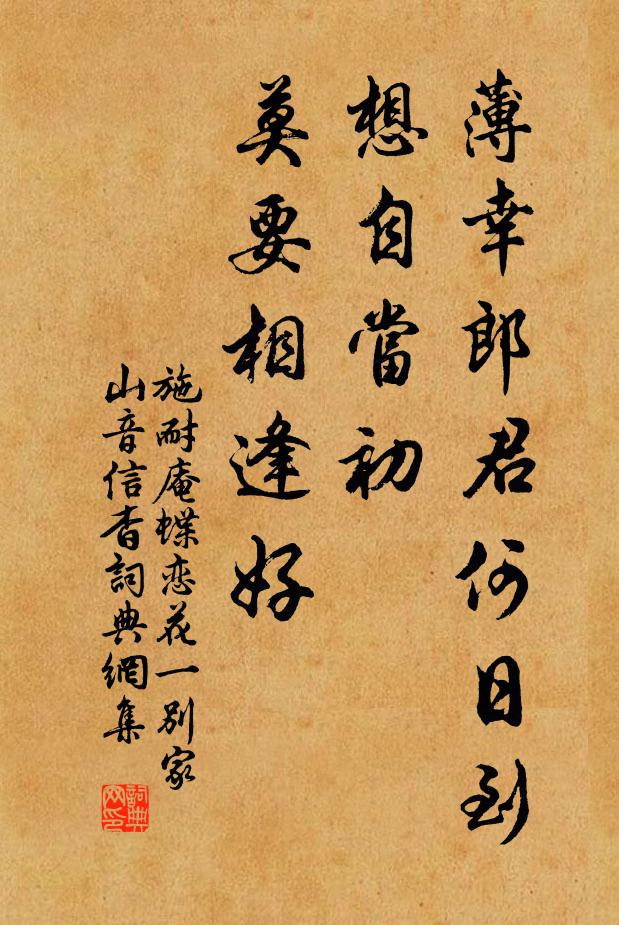 薄幸郎君何日到
想自當初
莫要相逢好
施耐庵蝶恋花一别家
山音信杳詞典網集
詞典
网印